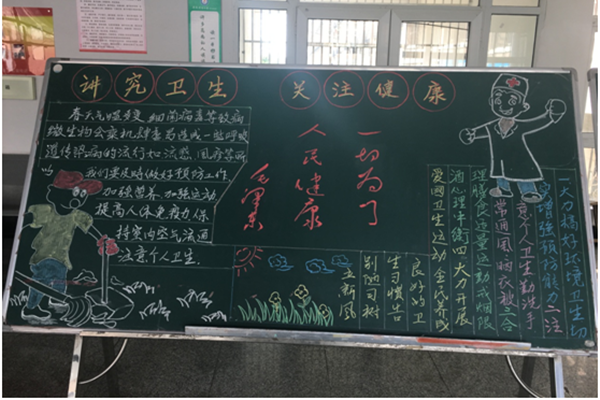 讲究卫生 关注健康
春天气温多变，细菌病毒等致病
微生物会乘机肆虐易造成一些呼吸
道传染病的流行如流感、风疹等呢
我们要及时做好预防工作
加强营养、加强运动
提高人体免疫力、保
持室内空气流通
注意个人卫生
一切为了
人民健康
毛泽东
一大力搞好环境卫生切
实增强预防能力二注
意个人卫生勤洗手
常通风晒衣被三合
理膳食适量运动戒烟限
酒心理平衡四大力开展
爱国卫生运动全民养成
良好的卫
生习惯告
别陋习树
立新风